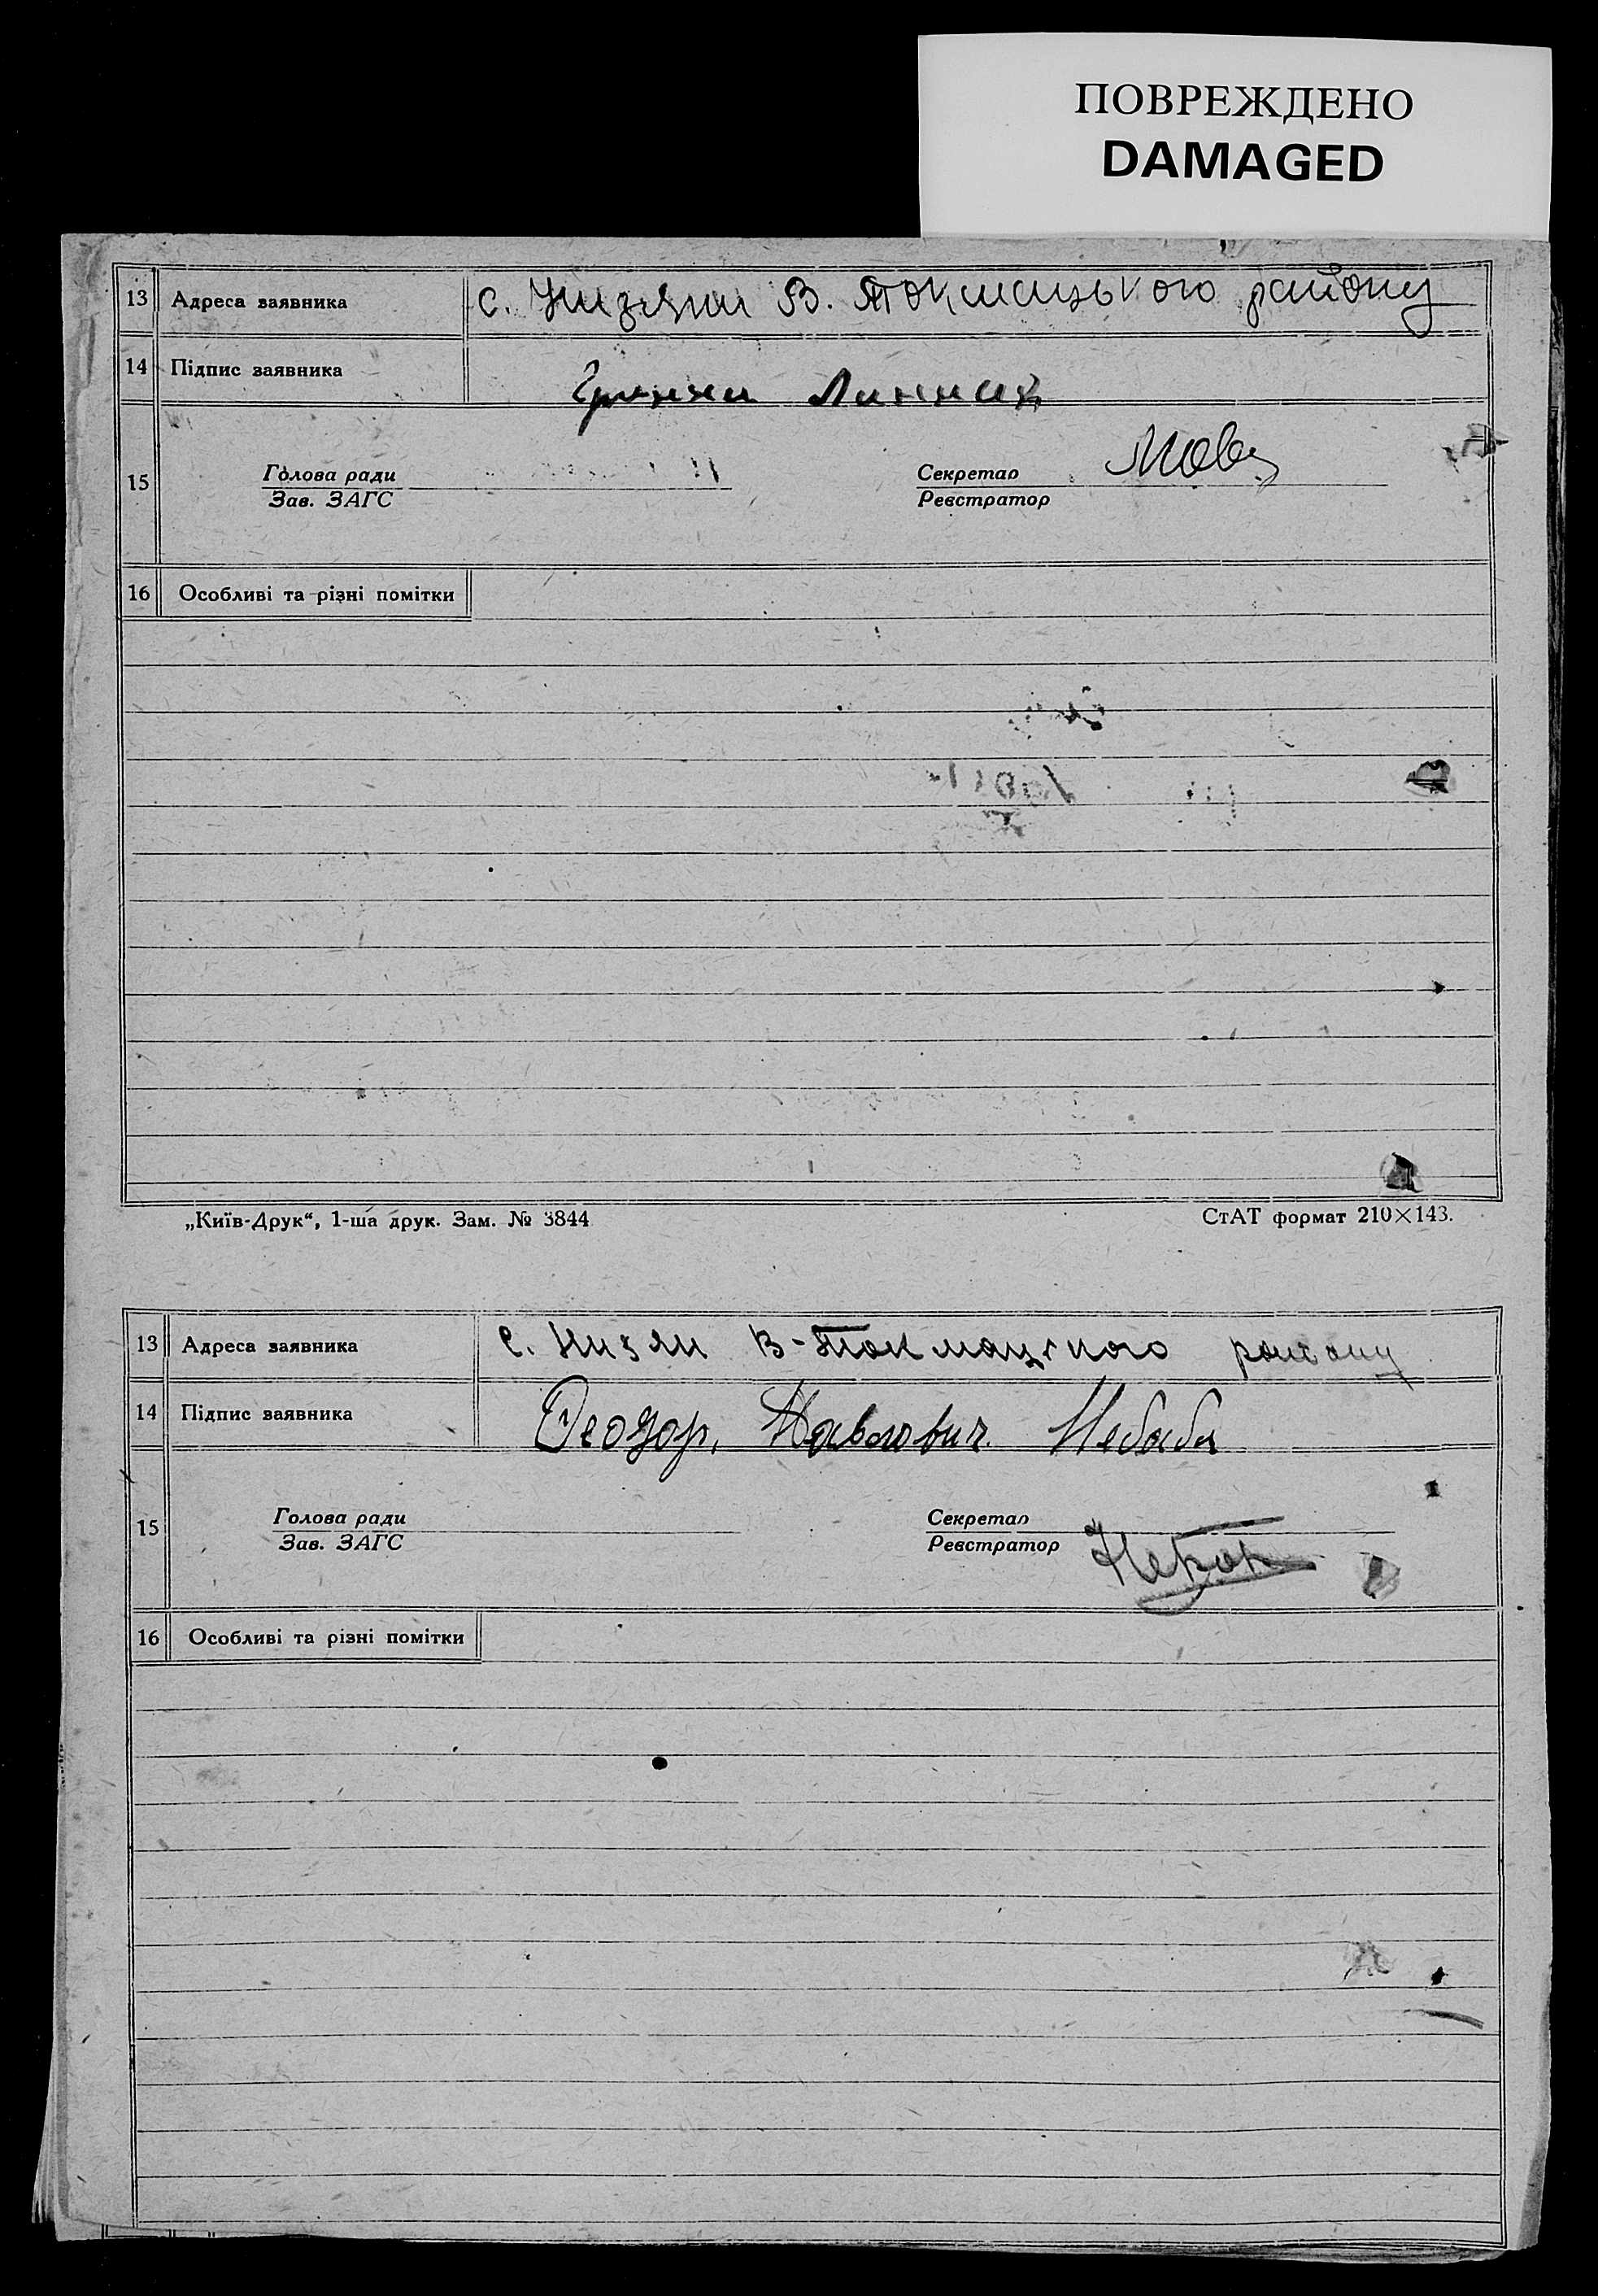 ПОВРЕЖДЕНО
DAMAGED
13 Адреса заявника с. Низяни В. Токмацького району
14 Підпис заявника
15 Голова ради Секретар
Зав. ЗАГС Реєстратор
16 Особливі та різні помітки
„Київ-Друк“, 1-ша друк. Зам. № 3844 СтАТ формат 210×143.
13 Адреса заявника с. Низяни В-Токмацького району
14 Підпис заявника Теодор. Павлович. Небаба
15 Голова ради Секретар
Зав. ЗАГС Реєстратор
16 Особливі та різні помітки